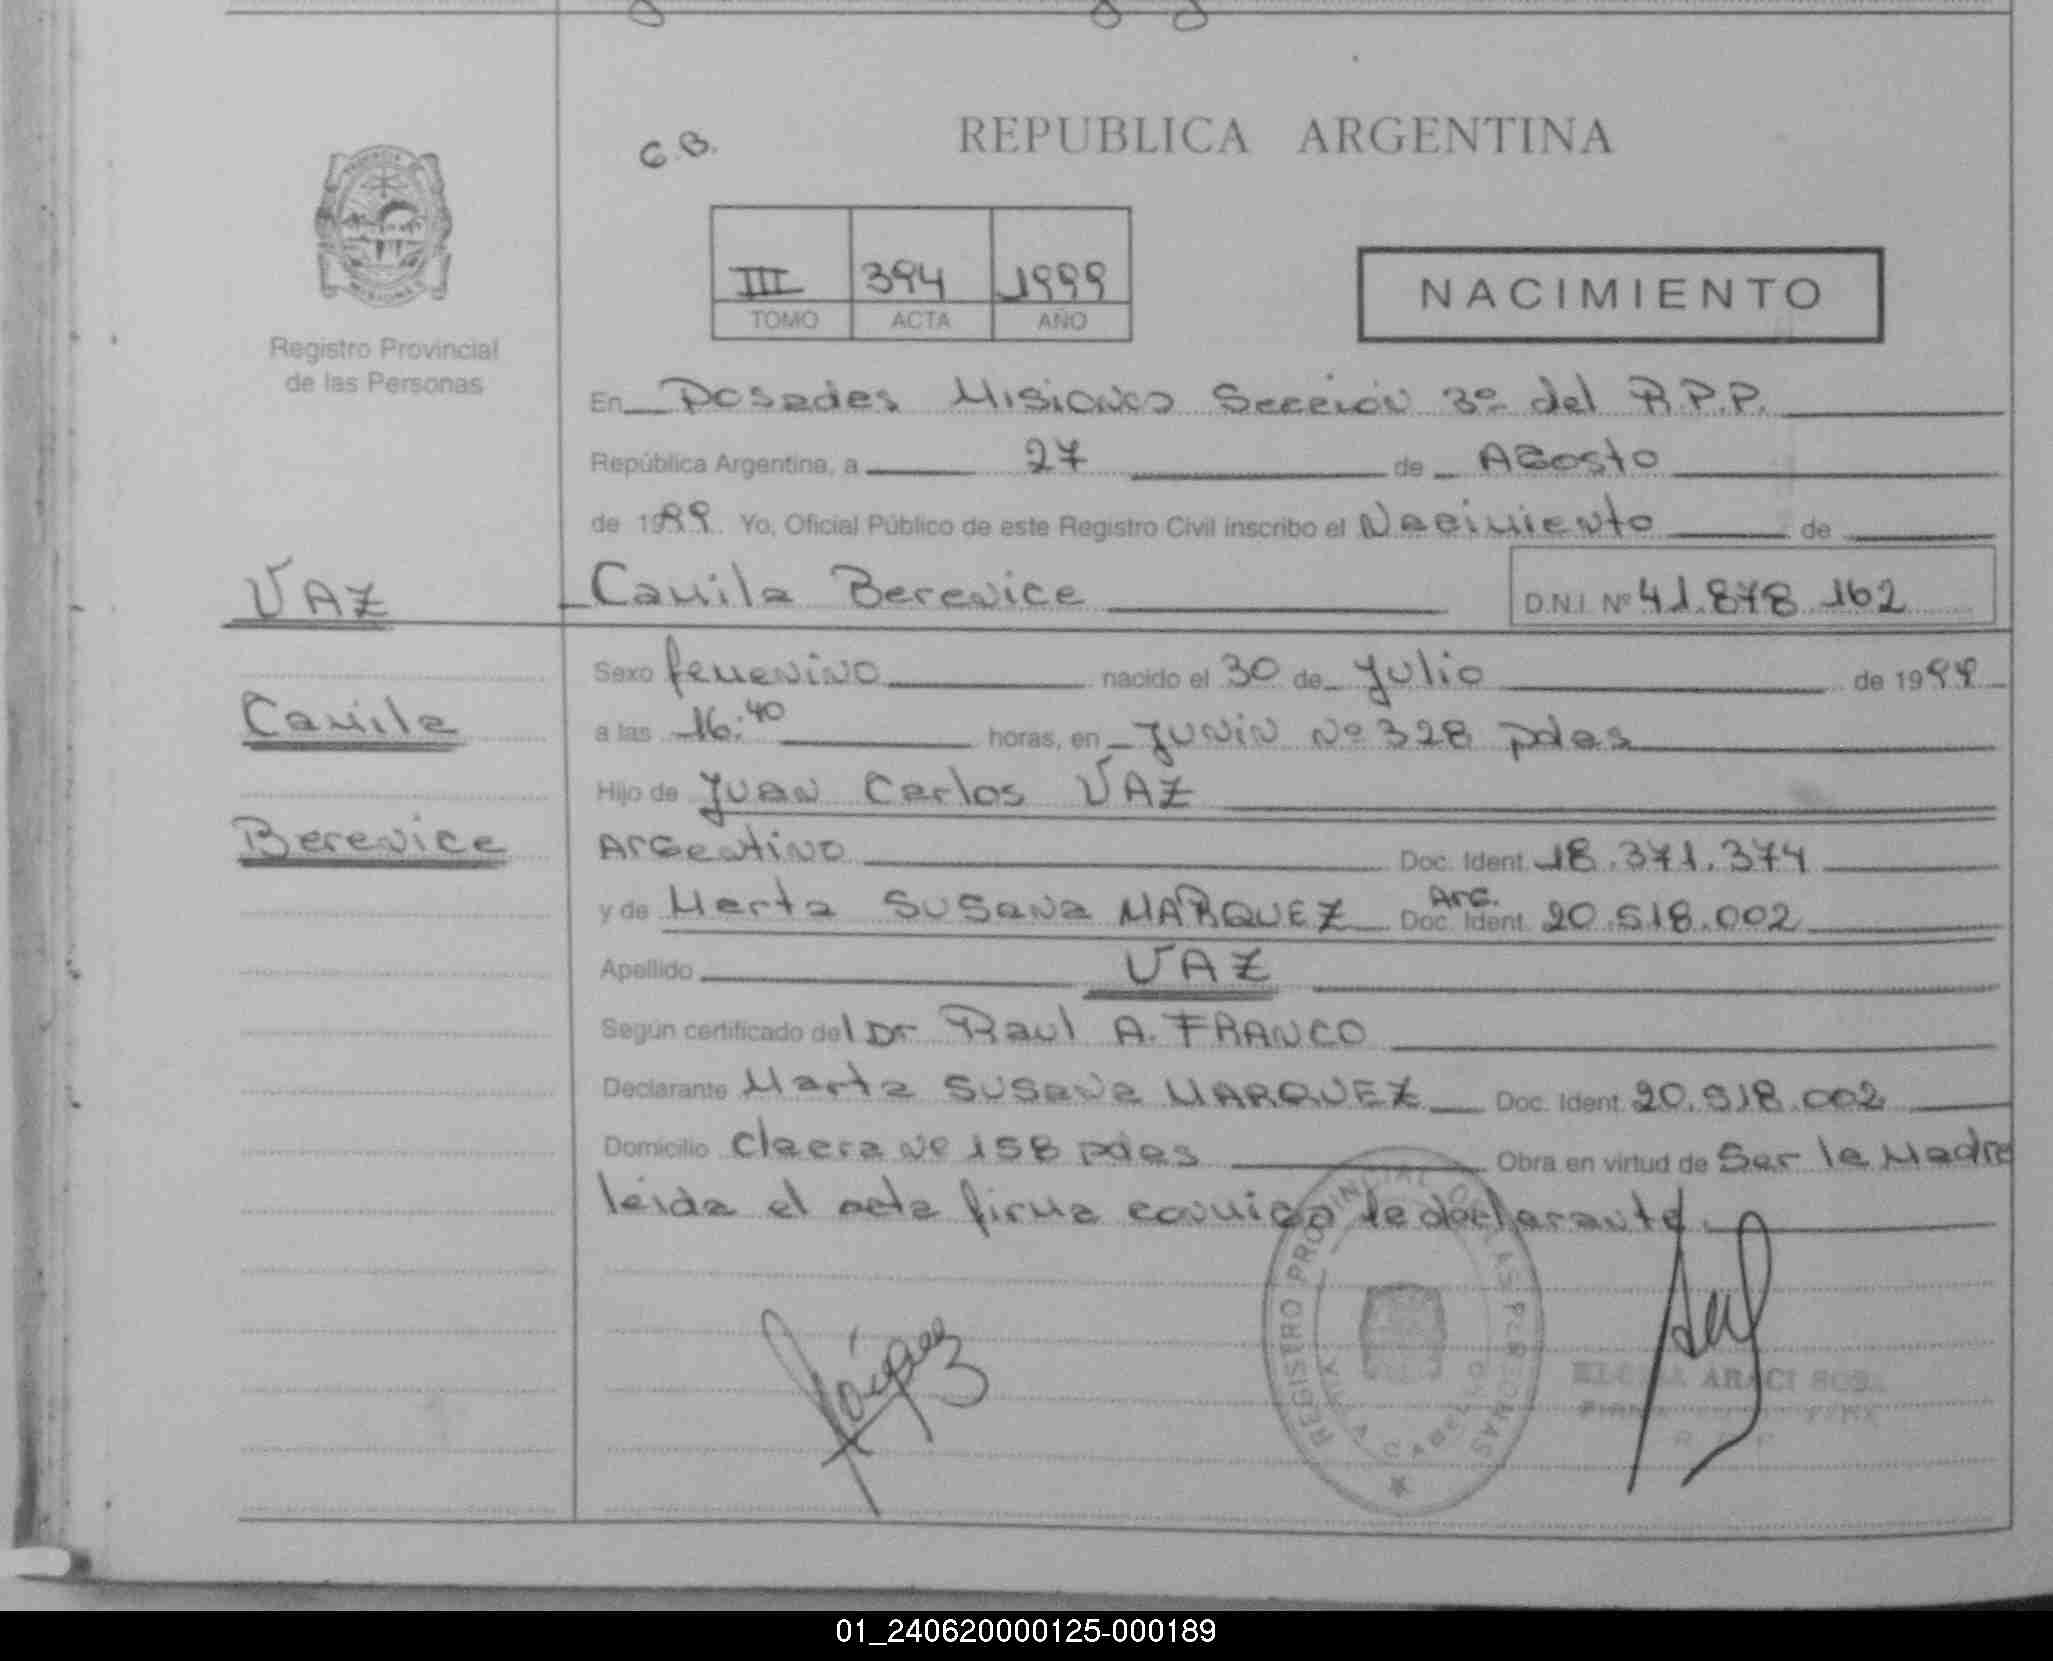 C.B.
REPUBLICA ARGENTINA
MISIONES
III 394 1999
TOMO ACTA AÑO
NACIMIENTO
Registro Provincial
de las Personas
En Posadas Misiones Sección 3º del R.P.P.
República Argentina, a 27 de Agosto
de 1999. Yo, Oficial Público de este Registro Civil inscribo el Nacimiento de
VAZ
Camila Berenice D.N.I. Nº 41.878.162
Sexo femenino nacido el 30 de Julio de 1999
Camila
a las 16:40 horas, en Junin Nº 328 pdas
Hijo de Juan Carlos VAZ
Berenice
Argentino Doc. Ident. 18.371.374
y de Marta Susana MARQUEZ Arg. Doc. Ident. 20.518.002
Apellido VAZ
Según certificado del Dr Raul A. FRANCO
Declarante Marta Susana MARQUEZ Doc. Ident. 20.518.002
Domicilio Claera Nº 158 pdas Obra en virtud de Ser la Madre
leida el acta firma conmigo la declarante.
REGISTRO PROVINCIAL DE LAS PERSONAS
VILLA CABELLO
ARACI SOSA
01_240620000125-000189